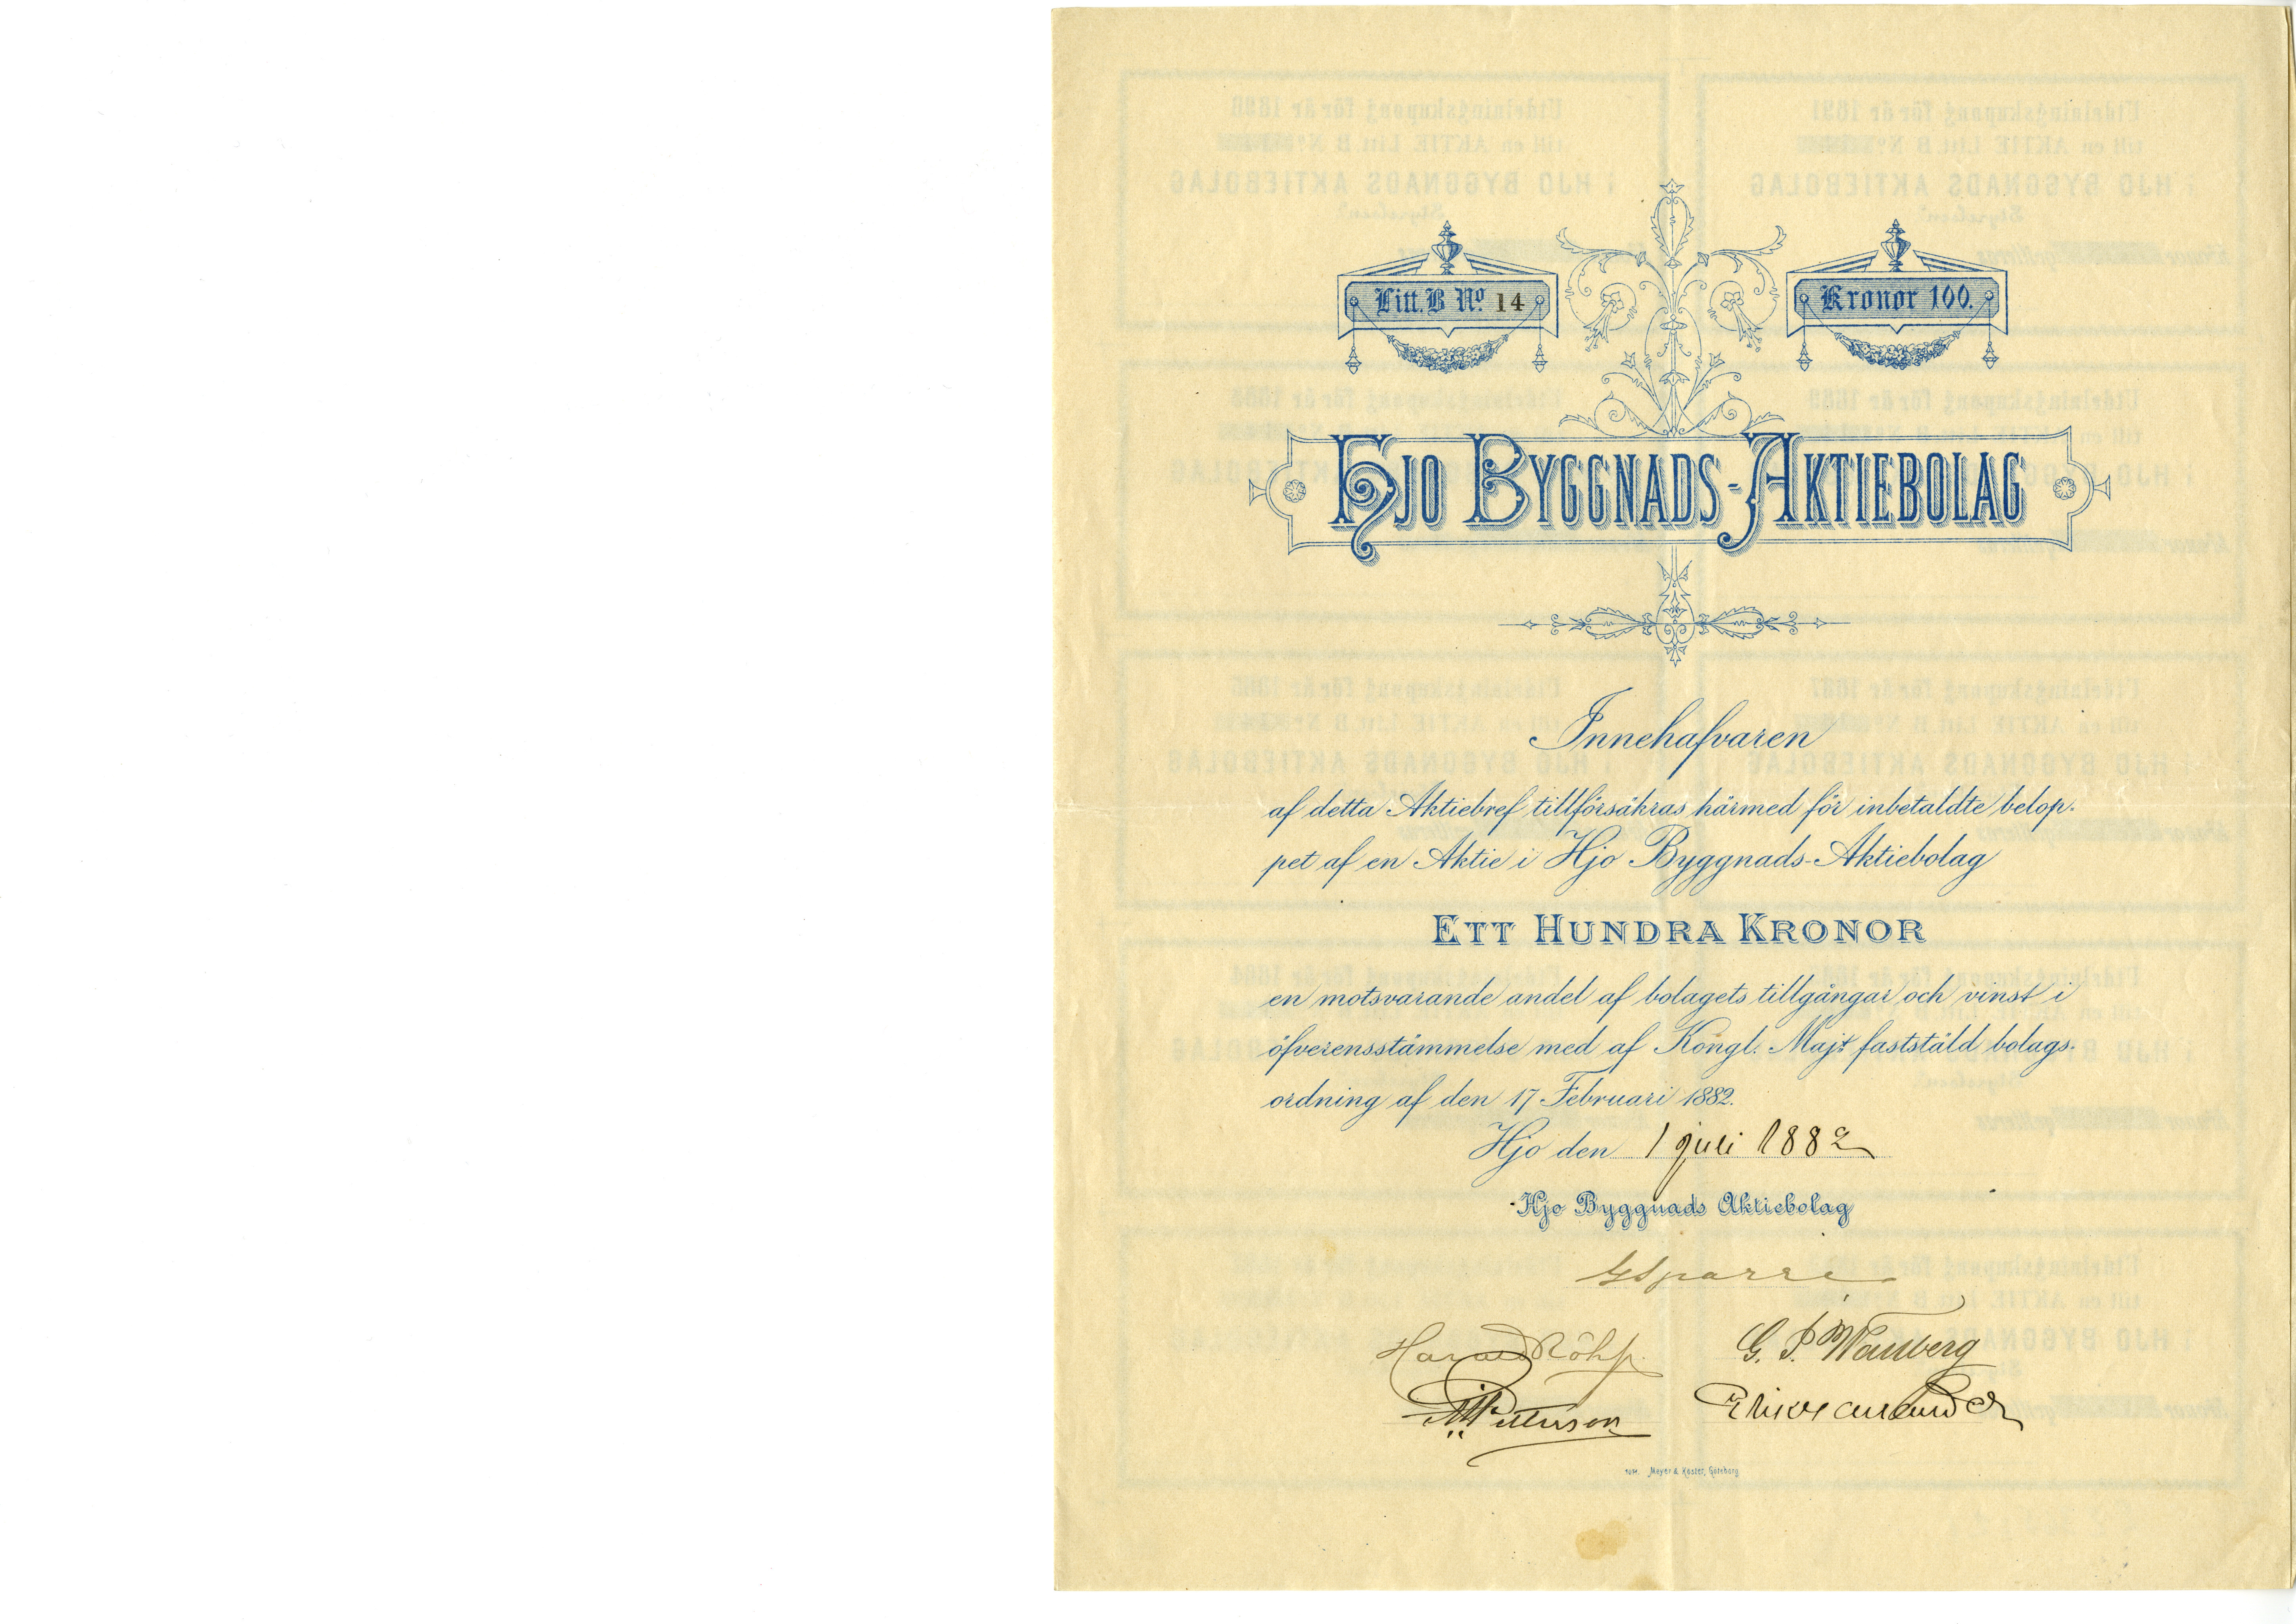 Litt. B No. 14
Kronor 100.
HJO BYGGNADS-AKTIEBOLAG
Innehafvaren
af detta Aktiebref tillförsäkras härmed för inbetaldte belop-
pet af en Aktie i Hjo Byggnads-Aktiebolag
ETT HUNDRA KRONOR
en motsvarande andel af bolagets tillgångar och vinst i
öfverensstämmelse med af Kongl. Majt faststäld bolags-
ordning af den 17 Februari 1882.
Hjo den 1 juli 1882
Hjo Byggnads Aktiebolag
GSparre
Harald
G. P. Wallberg
Petterson
Meyer & Köster, Göteborg